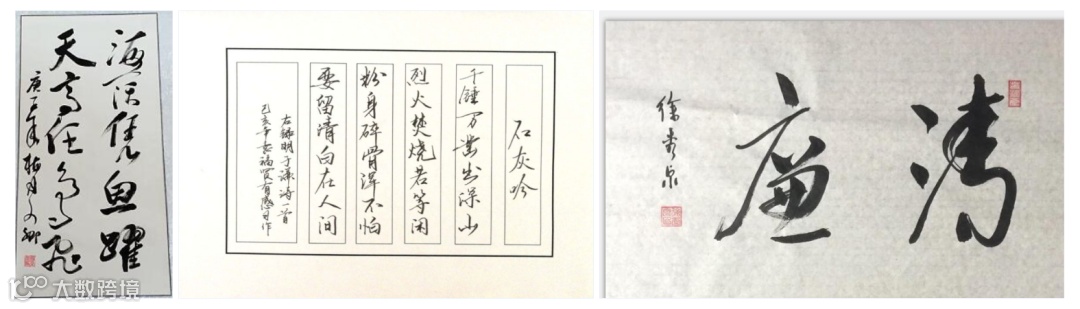 海阔凭鱼躍
天高任鸟飞
庚子年
石灰吟
千锤万凿出深山
烈火焚烧若等闲
粉身碎骨浑不怕
要留清白在人间
右录明于谦诗一首
己亥年 有感习作
清廉
徐秀泉
大数跨境